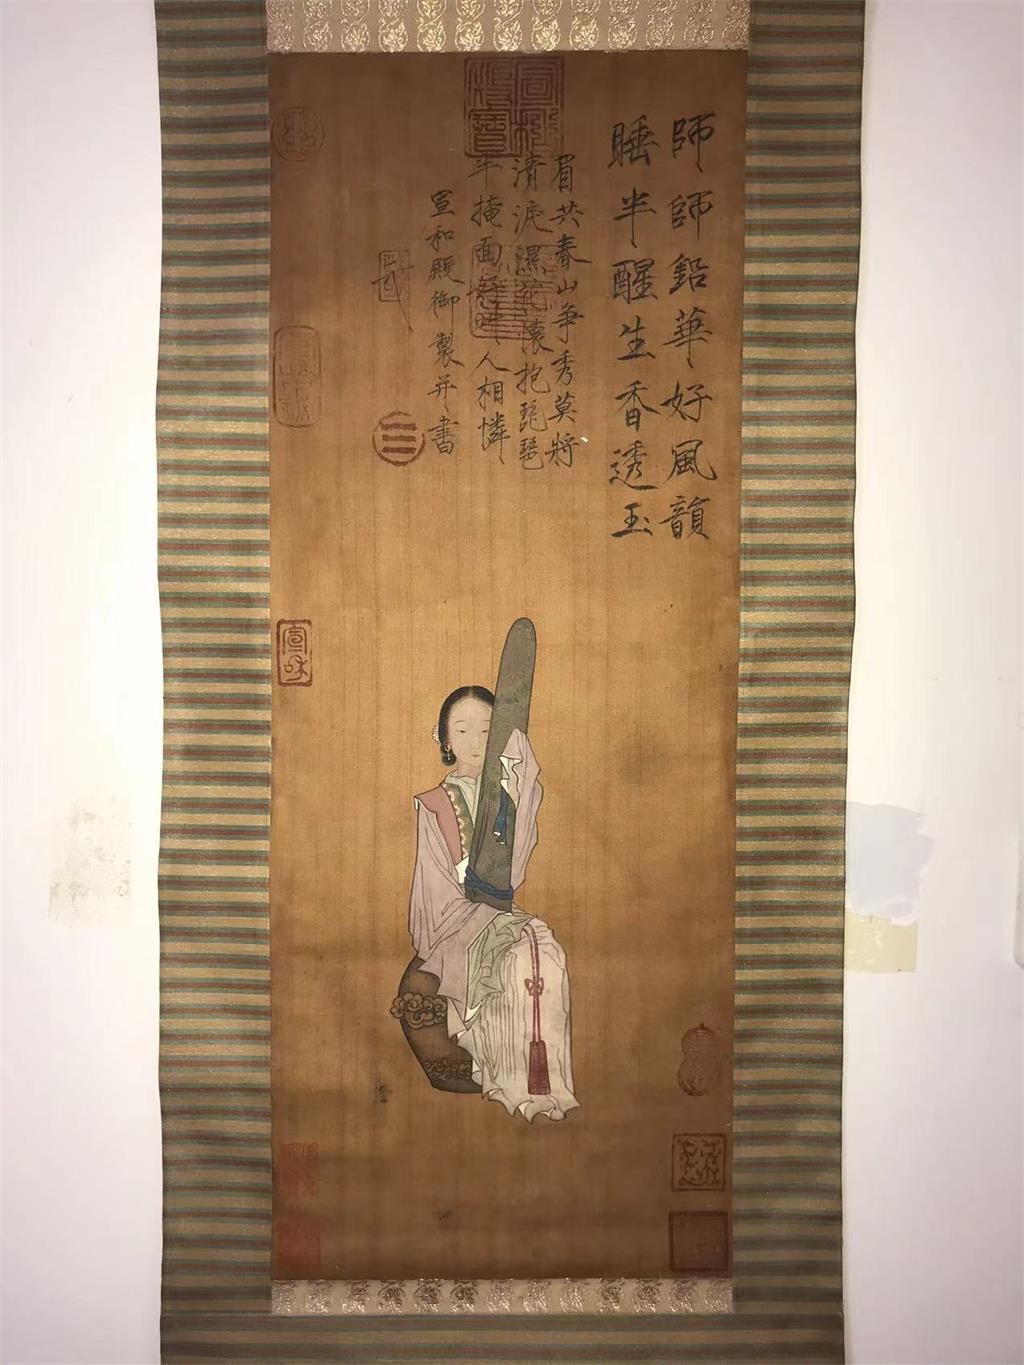 師師鉛華好風韻
睡半醒生香透玉
眉共春山争秀莫將
清淚濕花懷抱琵琶
半掩面人相憐
宣和殿御製并書
宣和